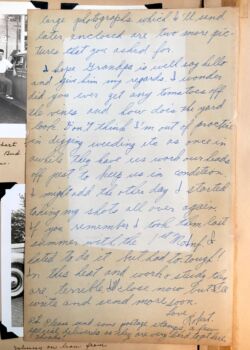 large photographs which I'll send
later enclosed are two more pic-
tures that you asked for.
I hope Grandpa is well say hello
and give him my regards. I wonder
did you ever get any tomatoes off
the vines and how does the yard
look. Don't think I'm out of practice
in digging weeding etc as once in
awhile they have us work our heads
off just to keep us in condition
I might add the other day I started
taking my shots all over again
If you remember I took them last
summer with the 1st
hated to do it but had to tough!
In this heat and work + study they
are terrible. I close now But I'll
write and send more soon.
Love
Robt.
P.S. Please send some postage stamps a few
special deliveries as they are very hard to get here
Thanks!